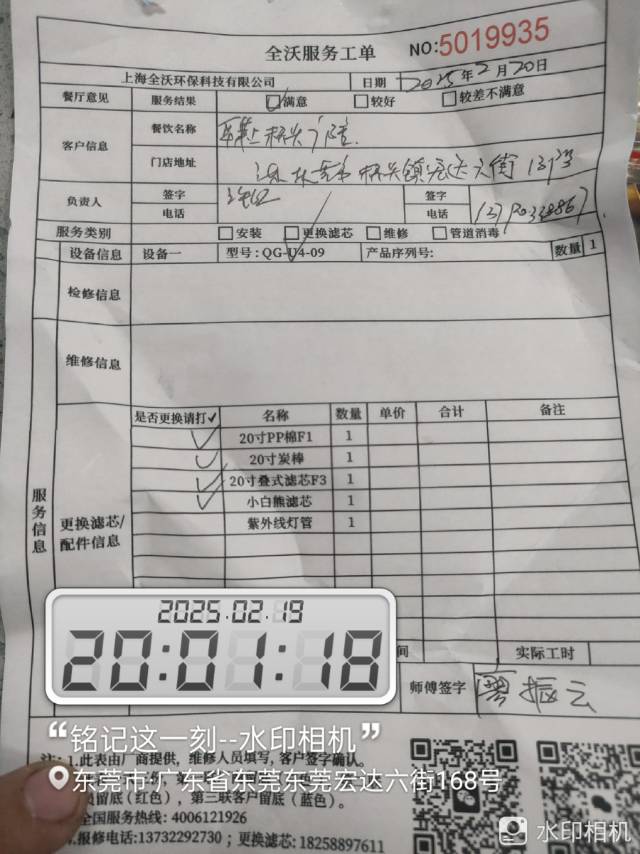 全沃服务工单 NO:5019935
上海全沃环保科技有限公司 日期 2025年2月20日
餐厅意见 服务结果 满意 较好 较差不满意
客户信息 餐饮名称
门店地址 桥头镇宏达六街
负责人 签字 签字
电话 电话
服务类别 安装 更换滤芯 维修 管道消毒
设备信息 设备一 型号:QG-U4-09 产品序列号: 数量 1
检修信息
维修信息
服务信息
更换滤芯/配件信息
是否更换请打✓ 名称 数量 单价 合计 备注
✓ 20寸PP棉F1 1
✓ 20寸炭棒 1
✓ 20寸叠式滤芯F3 1
✓ 小白熊滤芯 1
紫外线灯管 1
2025.02.19
20:01:18
间 实际工时
师傅签字 振云
“铭记这一刻--水印相机”
注:1.此表由厂商提供,维修人员填写,客户签字确认。
东莞市·广东省东莞东莞宏达六街168号
员留底(红色),第三联客户留底(蓝色)。
全国服务热线:4006121926
4.报修电话:13732292730;更换滤芯:18258897611
水印相机